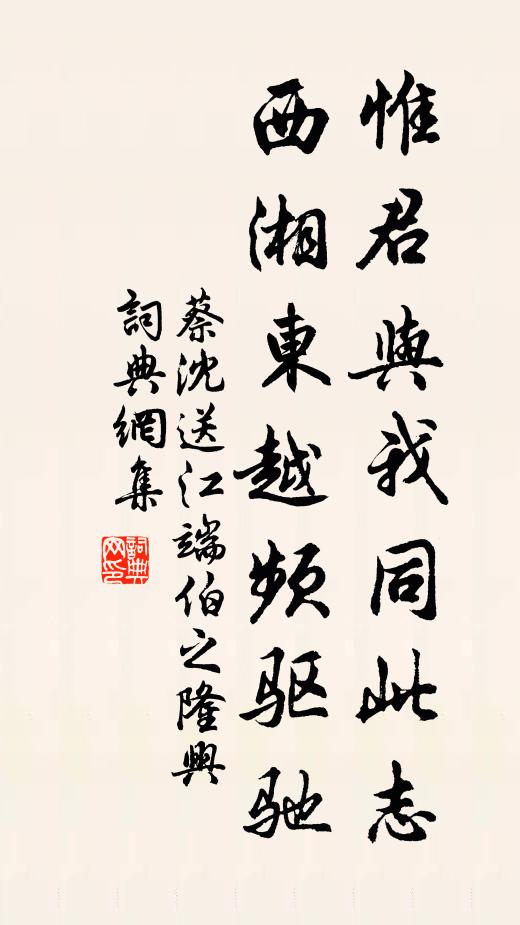 惟君與我同此志
西湘東越頻驱驰
蔡沈送江端伯之隆興
詞典網集
詞典網印